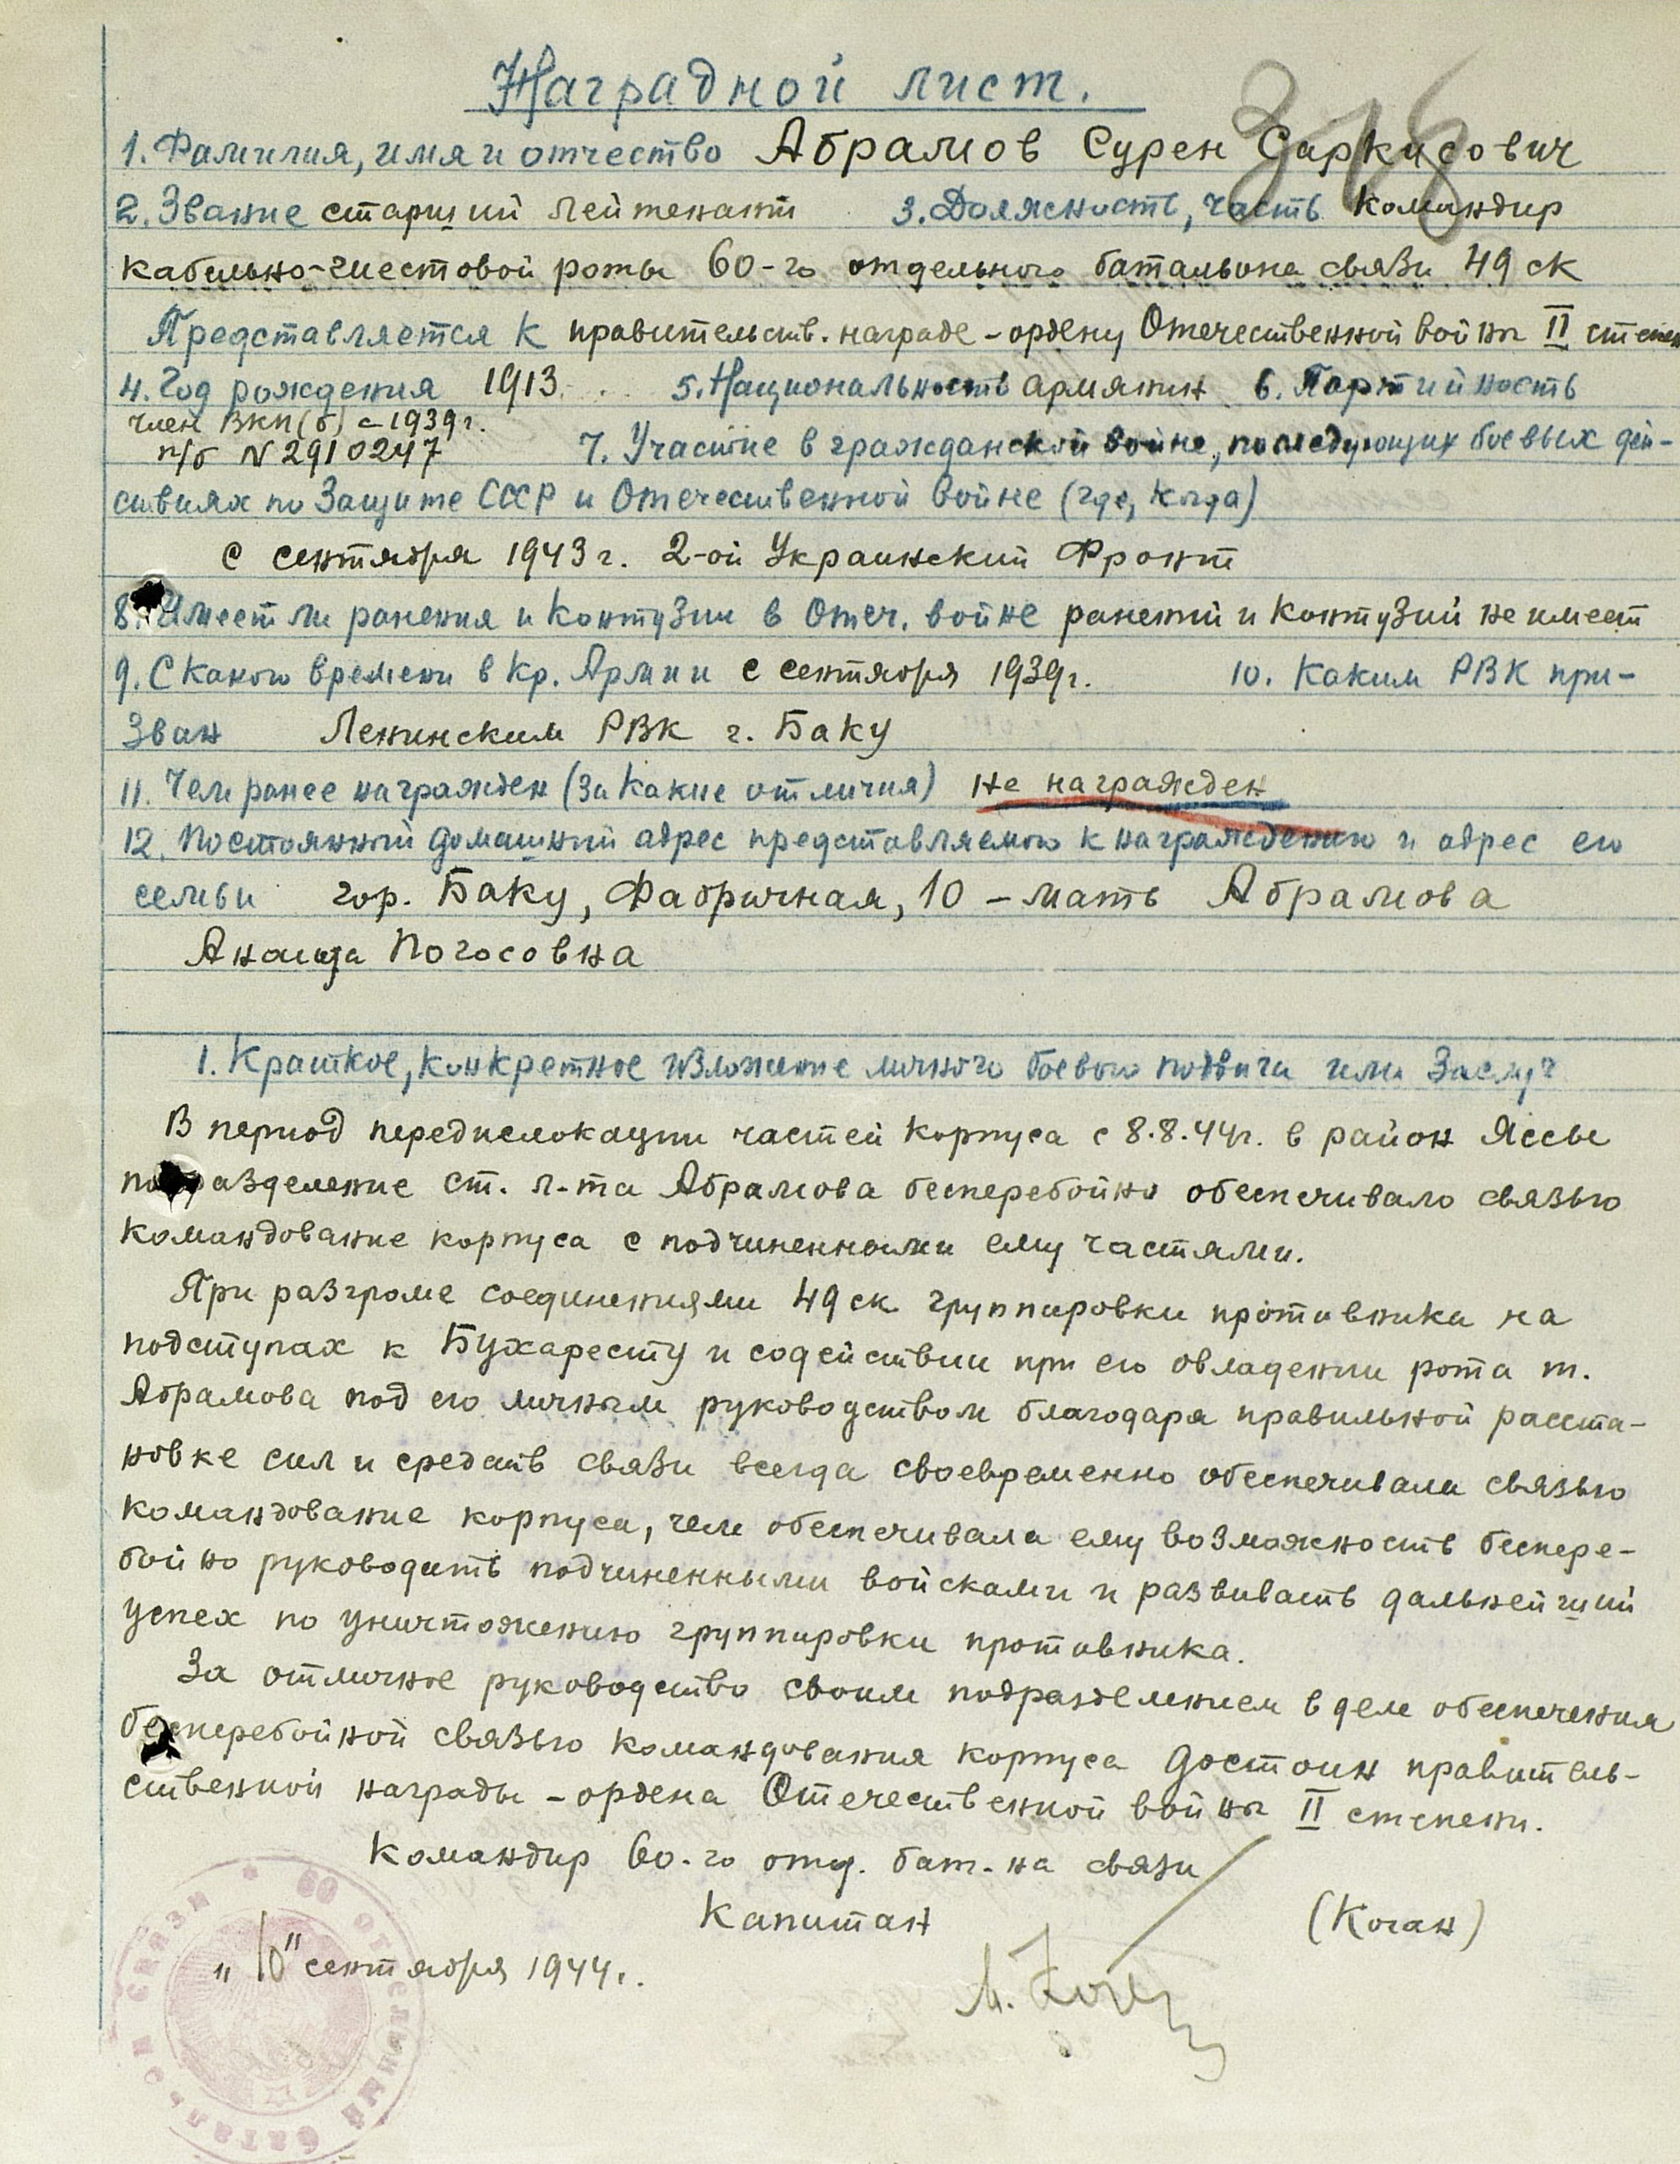 Наградной лист.
1. Фамилия, имя и отчество Абрамов Сурен Саркисович
2. Звание старший лейтенант 3. Должность, часть командир
кабельно-шестовой роты 60-го отдельного батальона связи 49 ск
Представляется к правительств. награде - ордену Отечественной войны II степени
4. Год рождения 1913. 5. Национальность армянин 6. Партийность
член ВКП(б) с 1939 г.
п/б N 2910247 7. Участие в гражданской войне, последующих боевых дей-
ствиях по защите СССР и Отечественной войне (где, когда)
с сентября 1943 г. 2-ой Украинский Фронт
8. Имеет ли ранения и контузии в Отеч. войне ранений и контузий не имеет
9. С какого времени в Кр. Армии с сентября 1939 г. 10. Каким РВК при-
зван Ленинским РВК г. Баку
11. Чем ранее награжден (за какие отличия) Не награжден
12. Постоянный домашний адрес представляемого к награждению и адрес его
семьи гор. Баку, Фабричная, 10 - мать Абрамова
Погосовна
1. Краткое, конкретное изложение личного боевого подвига или заслуг
В период передислокации частей корпуса с 8.8.44 г. в район Яссы
подразделение ст. л-та Абрамова бесперебойно обеспечивало связью
командование корпуса с подчиненными ему частями.
При разгроме соединениями 49 ск группировки противника на
подступах к Бухаресту и содействии при его овладении рота т.
Абрамова под его личным руководством благодаря правильной расста-
новке сил и средств связи всегда своевременно обеспечивала связью
командование корпуса, чем обеспечивала ему возможность беспере-
бойно руководить подчиненными войсками и развивать дальнейший
успех по уничтожению группировки противника.
За отличное руководство своим подразделением в деле обеспечения
бесперебойной связью командования корпуса достоин правитель-
ственной награды - ордена Отечественной войны II степени.
Командир 60-го отд. бат-на связи
Капитан (Коган)
„10" сентября 1944 г.
60 отдельный батальон связи